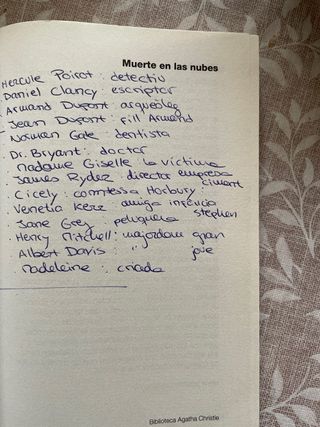 Muerte en las nubes
Hercule Poirot : detectiu
Daniel Clancy : escriptor
Armand Dupont : arqueòleg
Jean Dupont : fill Armand
Norman Gale : dentista
Dr. Bryant : doctor
Madame Giselle la víctima
James Ryder director empresa
ciment
Cicely : comtessa Horbury
Venetia Kerr amiga infància
stephen
Jane Grey perruquera
Henry Mitchell : majordom gran
Albert Davis : " jove
Madeleine : criada
Biblioteca Agatha Christie